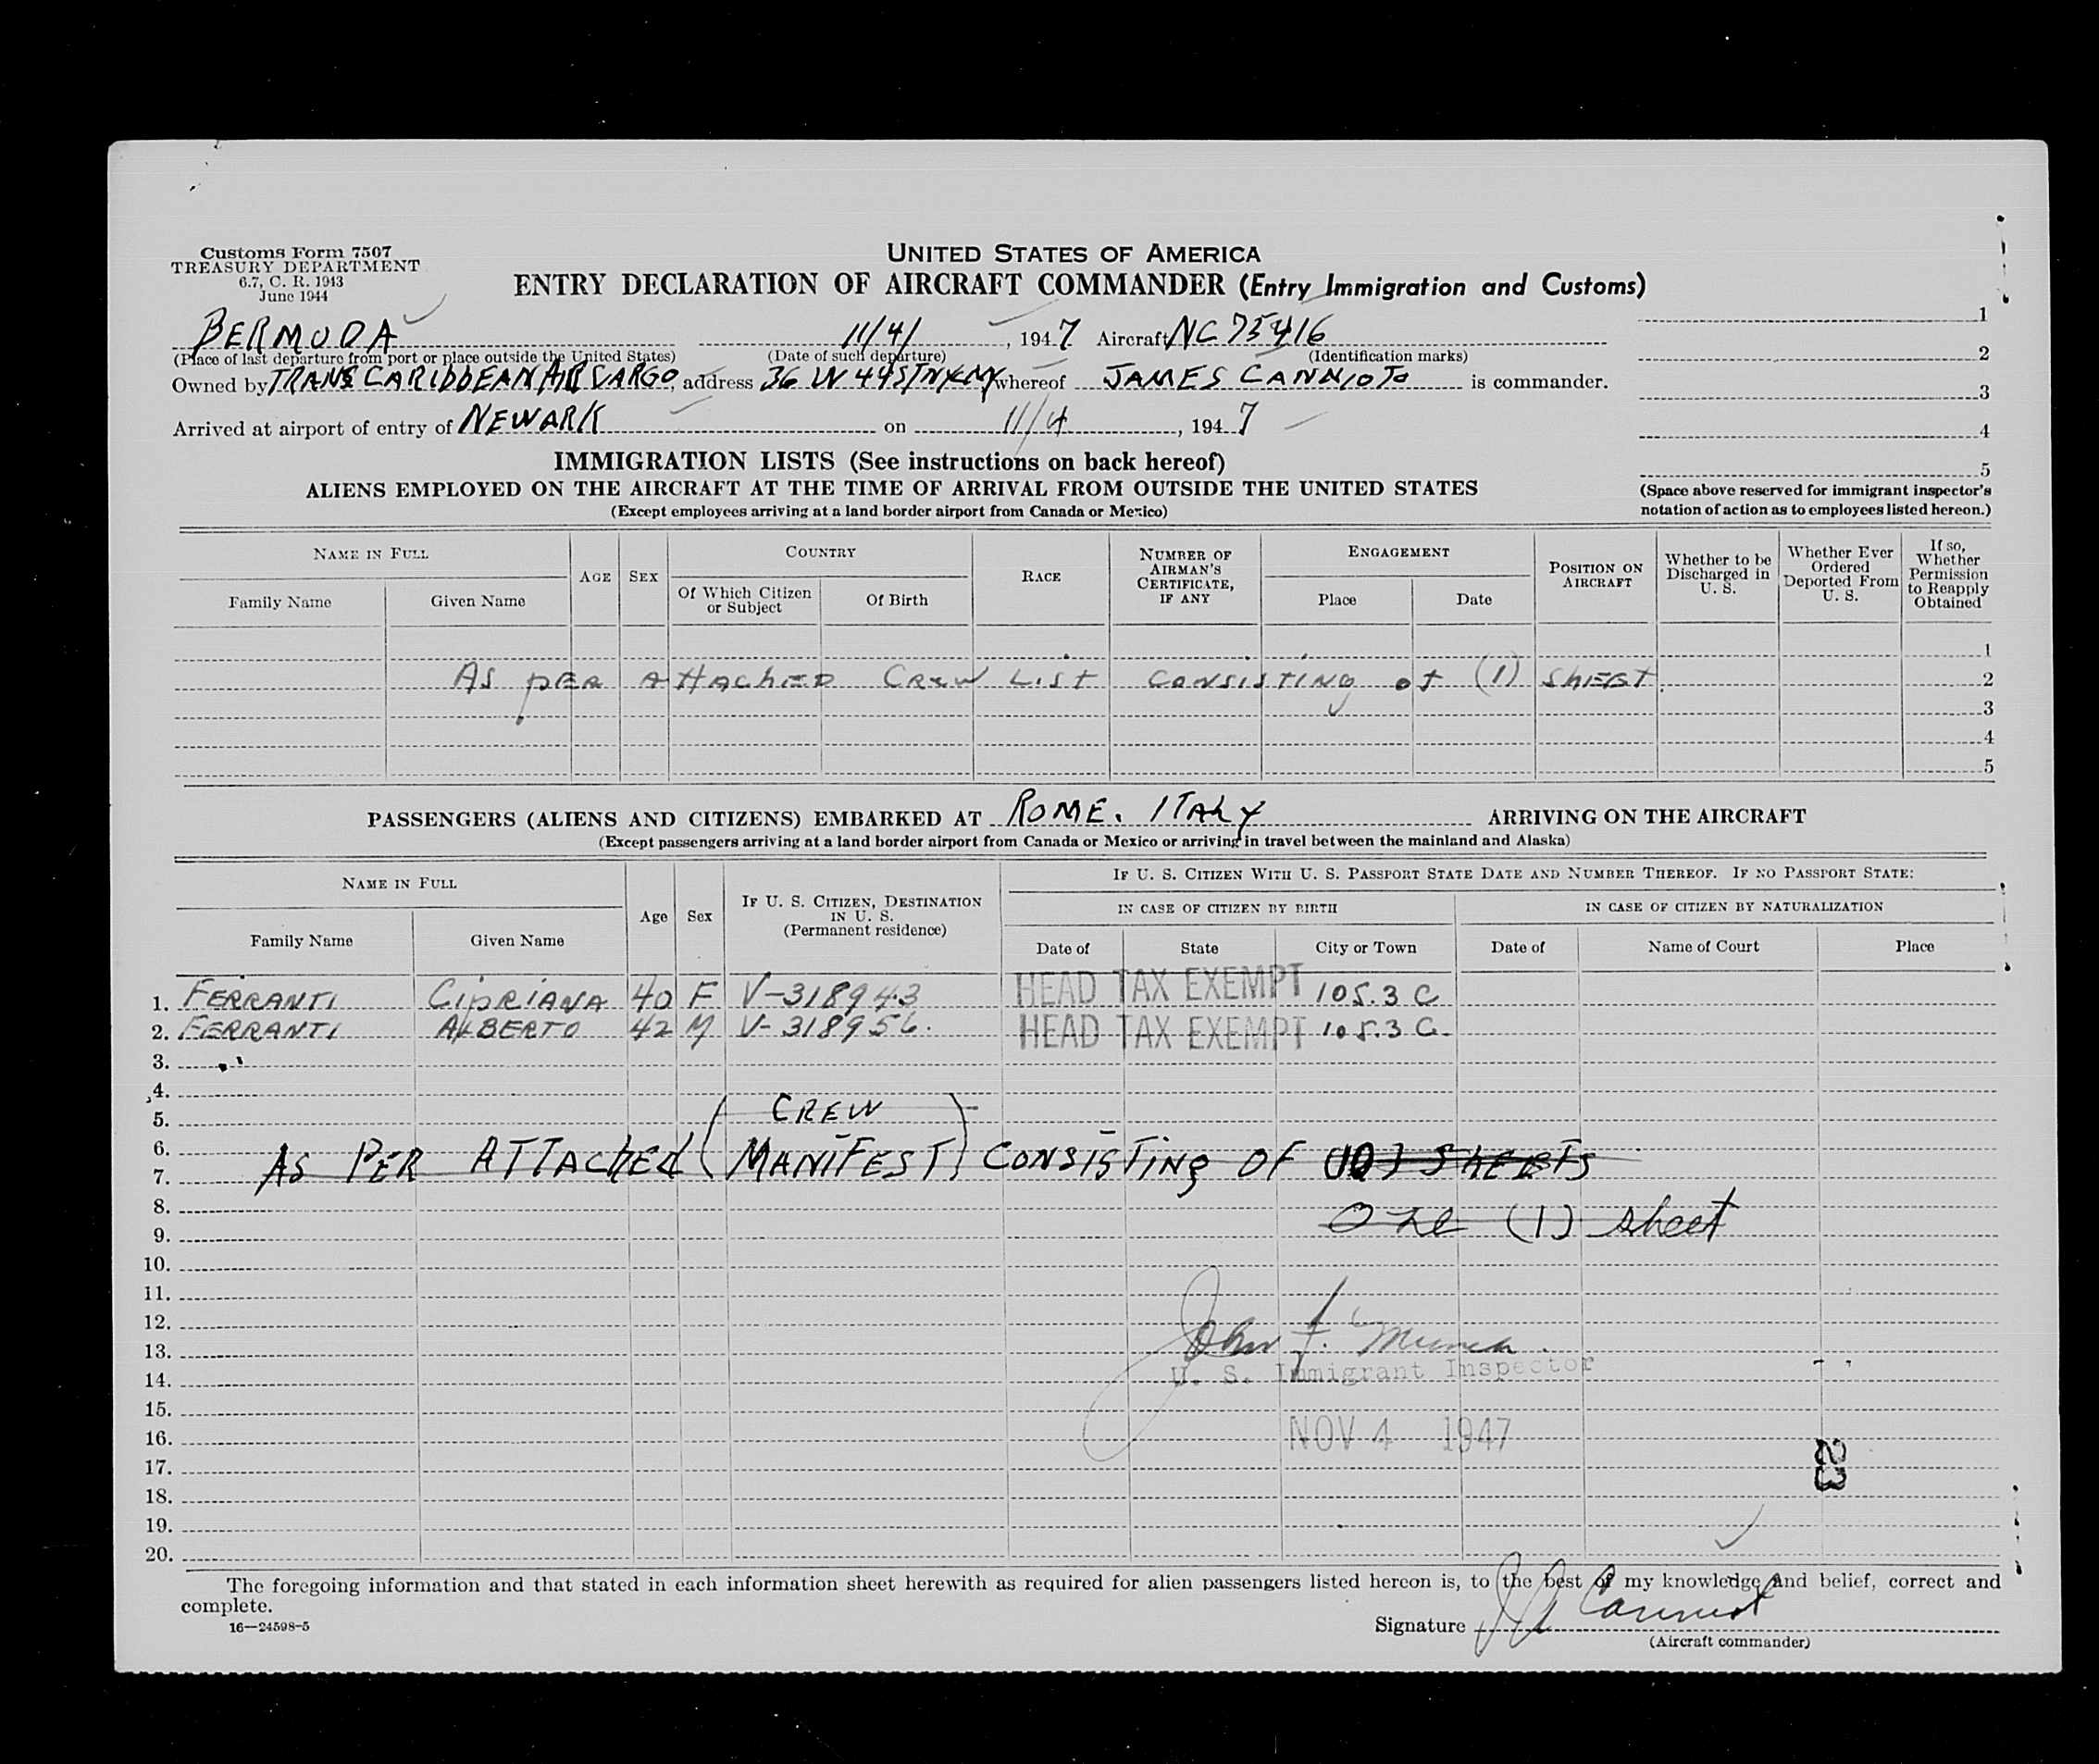 Customs Form 7507
TREASURY DEPARTMENT
6.7, C. R. 1943
June 1944
UNITED STATES OF AMERICA
ENTRY DECLARATION OF AIRCRAFT COMMANDER (Entry Immigration and Customs)
BERMUDA 11/4/, 1947 Aircraft NC 75416
(Place of last departure from port or place outside the United States) (Date of such departure) (Identification marks)
Owned by TRANS CARIBBEAN AIR CARGO, address 36 W 44 ST NY NY whereof JAMES CANNIOTO is commander.
Arrived at airport of entry of NEWARK on 11/4, 1947
1
2
3
4
5
(Space above reserved for immigrant inspector's
notation of action as to employees listed hereon.)
IMMIGRATION LISTS (See instructions on back hereof)
ALIENS EMPLOYED ON THE AIRCRAFT AT THE TIME OF ARRIVAL FROM OUTSIDE THE UNITED STATES
(Except employees arriving at a land border airport from Canada or Mexico)
NAME IN FULL
Family Name Given Name
AGE
SEX
COUNTRY
Of Which Citizen or Subject
Of Birth
RACE
NUMBER OF AIRMAN'S CERTIFICATE, IF ANY
ENGAGEMENT
Place Date
POSITION ON AIRCRAFT
Whether to be Discharged in U. S.
Whether Ever Ordered Deported From U. S.
If so, Whether Permission to Reapply Obtained
1
AS PER ATTACHED CREW LIST CONSISTING OF (1) SHEET 2
3
4
5
PASSENGERS (ALIENS AND CITIZENS) EMBARKED AT ROME. ITALY ARRIVING ON THE AIRCRAFT
(Except passengers arriving at a land border airport from Canada or Mexico or arriving in travel between the mainland and Alaska)
NAME IN FULL
Family Name Given Name
Age
Sex
IF U. S. CITIZEN, DESTINATION IN U. S.
(Permanent residence)
IF U. S. CITIZEN WITH U. S. PASSPORT STATE DATE AND NUMBER THEREOF. IF NO PASSPORT STATE:
IN CASE OF CITIZEN BY BIRTH IN CASE OF CITIZEN BY NATURALIZATION
Date of State City or Town Date of Name of Court Place
1. FERRANTI CIPRIANA 40 F V-318943 HEAD TAX EXEMPT 105.3 C
2. FERRANTI ALBERTO 42 M V-318956. HEAD TAX EXEMPT 105.3 C.
3.
4.
5. CREW
6.
AS PER ATTACHED (MANIFEST) CONSISTING OF SHEETS
7.
8.
One (1) sheet
9.
10.
11.
12.
13. John F.
14. U. S. Immigrant Inspector
15.
16. NOV 4 1947
17. 23
18.
19.
20.
The foregoing information and that stated in each information sheet herewith as required for alien passengers listed hereon is, to the best of my knowledge and belief, correct and
complete.
16—24598-5
Signature
(Aircraft commander)